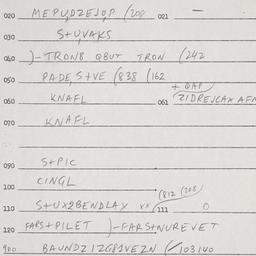 020 MEPUDZEJOP (208 021 —
030 S+UVAKS
040 )-TRON8 QBUT TRON (242
050 PADES+VE (838 (162
+ QAP
060 KNAFL 061 ZIDREJCAX AFN
070 KNAFL
090 S+PIC
100 CINGL
(812 (208
110 S+UX2BENDLAY xx 111 0
120 FAPS+PILET )-FARS+NUREVET
900 BAUNDZIZG81VEZN (103140